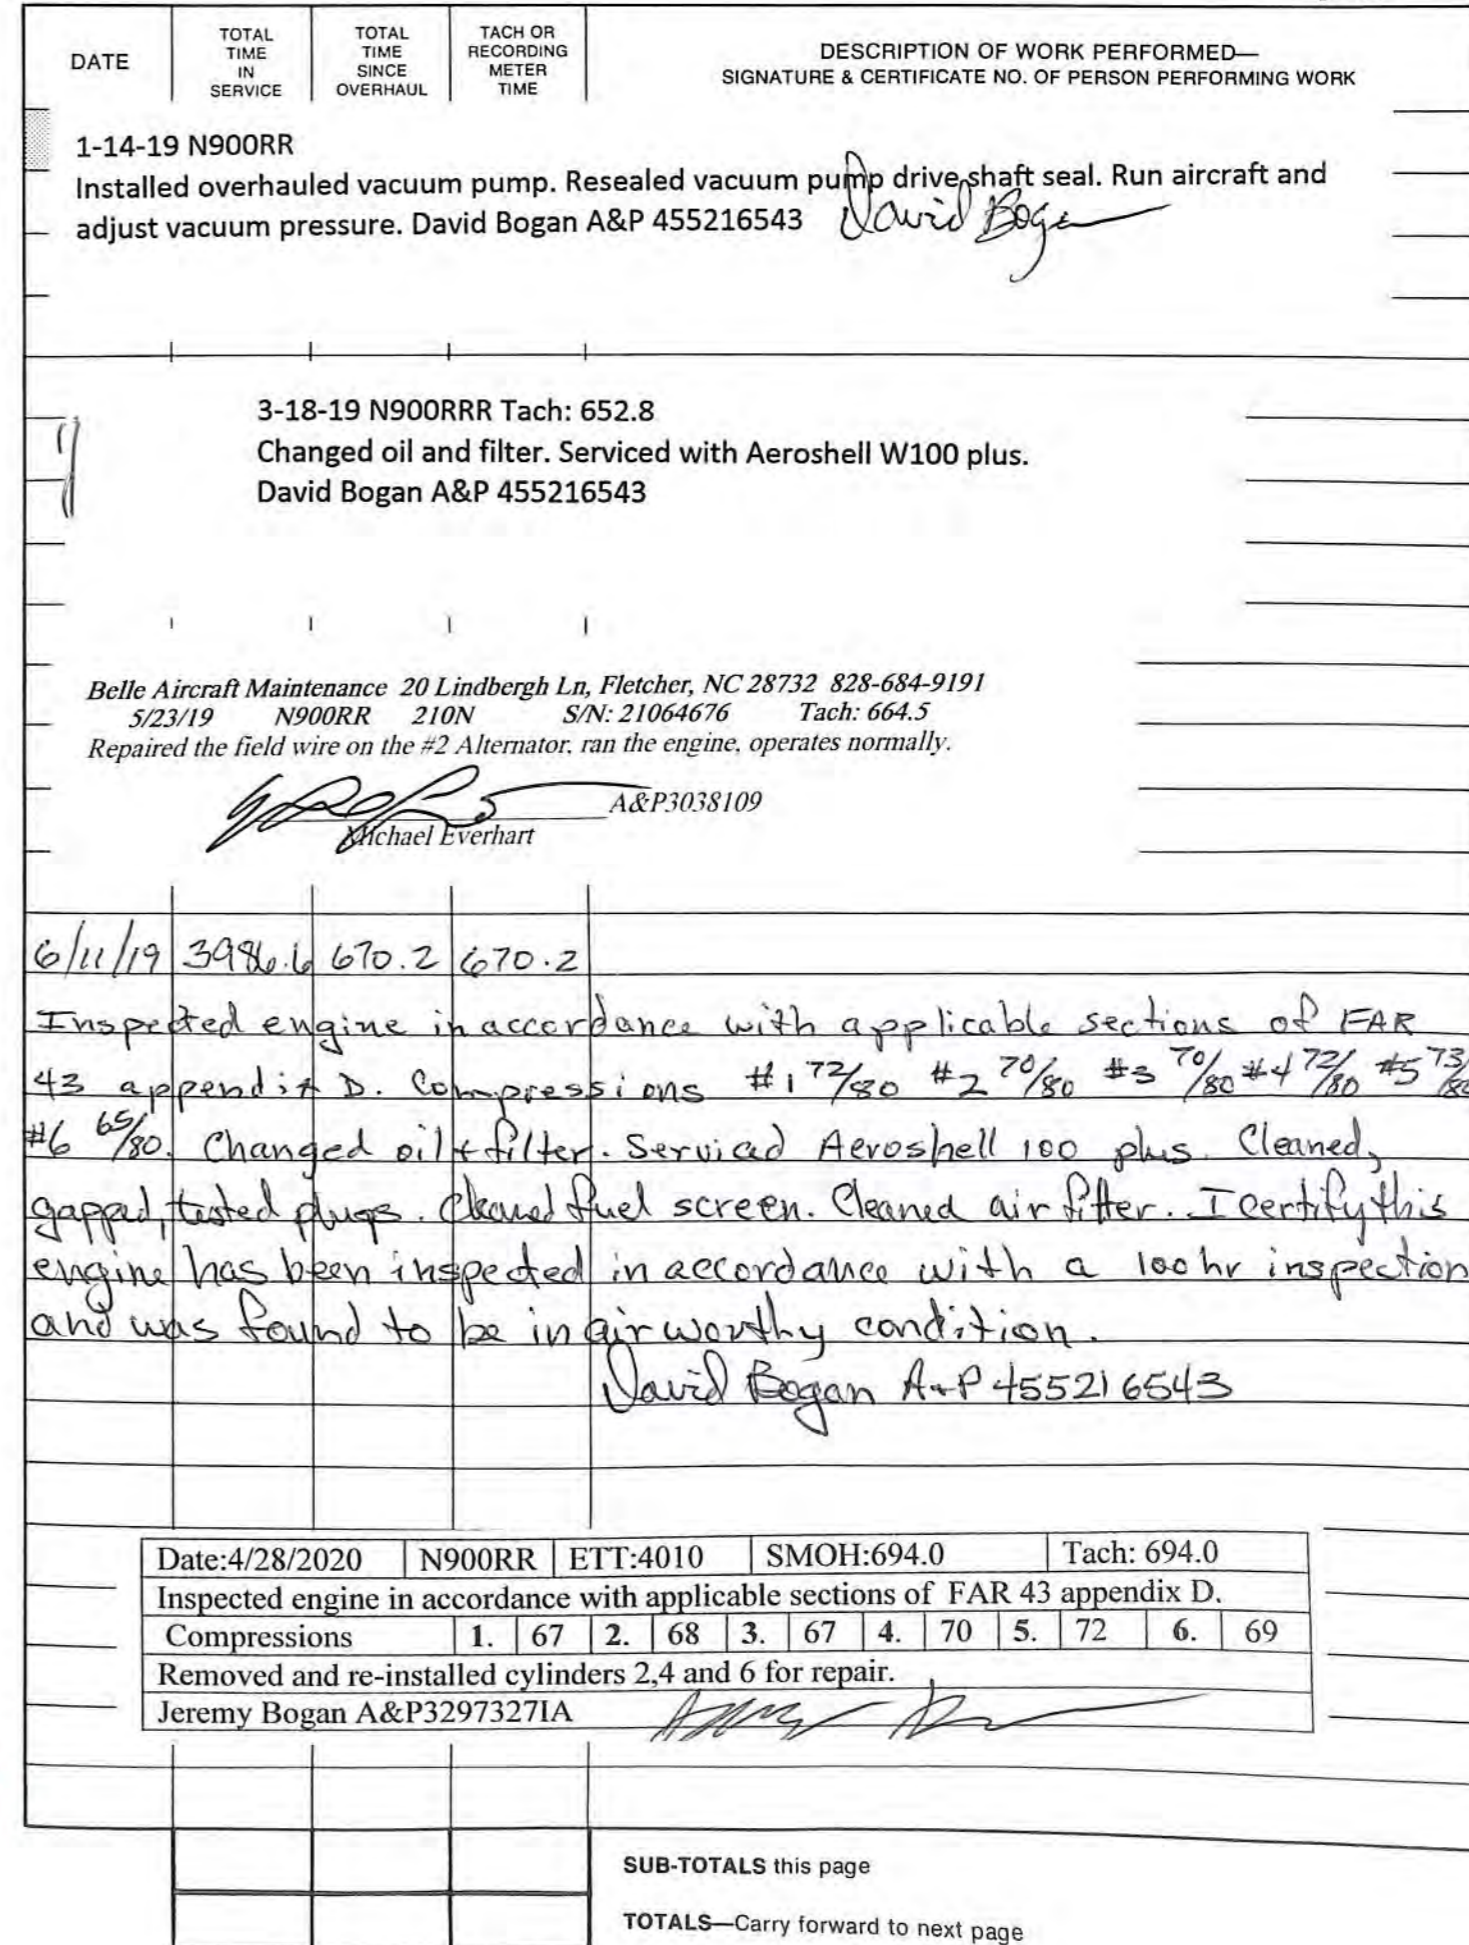 DATE
TOTAL TIME IN SERVICE
TOTAL TIME SINCE OVERHAUL
TACH OR RECORDING METER TIME
DESCRIPTION OF WORK PERFORMED—
SIGNATURE & CERTIFICATE NO. OF PERSON PERFORMING WORK
1-14-19 N900RR
Installed overhauled vacuum pump. Resealed vacuum pump drive shaft seal. Run aircraft and
adjust vacuum pressure. David Bogan A&P 455216543 David Bogan
3-18-19 N900RRR Tach: 652.8
Changed oil and filter. Serviced with Aeroshell W100 plus.
David Bogan A&P 455216543
Belle Aircraft Maintenance 20 Lindbergh Ln, Fletcher, NC 28732 828-684-9191
5/23/19 N900RR 210N S/N: 21064676 Tach: 664.5
Repaired the field wire on the #2 Alternator, ran the engine, operates normally.
A&P3038109
Michael Everhart
6/11/19 3986.6 670.2 670.2
Inspected engine in accordance with applicable sections of FAR
43 appendix D. Compressions #1 72/80 #2 70/80 #3 70/80 #4 72/80 #5 73/80
#6 65/80. Changed oil + filter. Serviced Aeroshell 100 plus. Cleaned,
gapped, tested plugs. Cleaned fuel screen. Cleaned air filter. I certify this
engine has been inspected in accordance with a 100hr inspection
and was found to be in airworthy condition.
David Bogan A+P 455216543
Date:4/28/2020 N900RR ETT:4010 SMOH:694.0 Tach: 694.0
Inspected engine in accordance with applicable sections of FAR 43 appendix D.
Compressions 1. 67 2. 68 3. 67 4. 70 5. 72 6. 69
Removed and re-installed cylinders 2,4 and 6 for repair.
Jeremy Bogan A&P3297327IA
SUB-TOTALS this page
TOTALS—Carry forward to next page